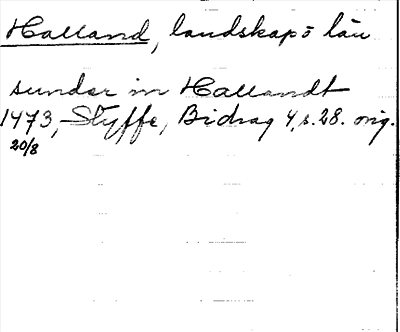 Halland, landskap o län
sunder in Hallandt
1473, Styffe, Bidrag 4, s. 28. orig.
20/8